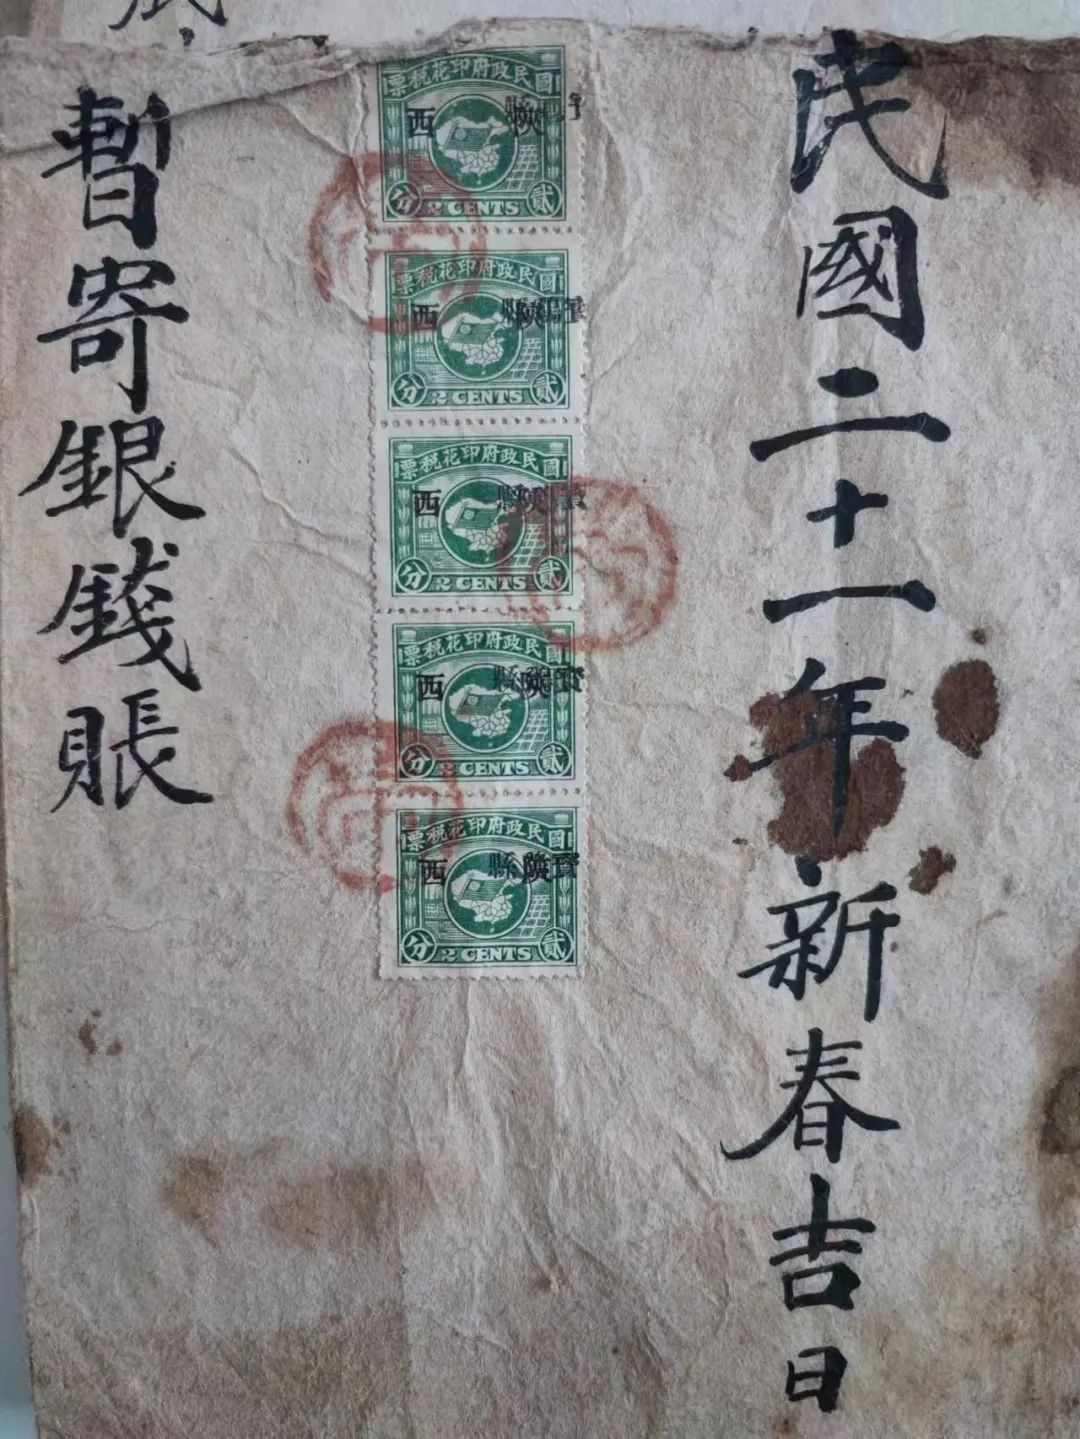 民國二十一年新春吉日
國民政府印花稅票
陝西
縣
分 2 CENTS 貳
國民政府印花稅票
陝西
縣
分 2 CENTS 貳
國民政府印花稅票
陝西
寶 縣
分 2 CENTS 貳
國民政府印花稅票
陝西
寶 縣
分 2 CENTS 貳
國民政府印花稅票
陝西
寶 縣
分 2 CENTS 貳
暫寄銀錢賬